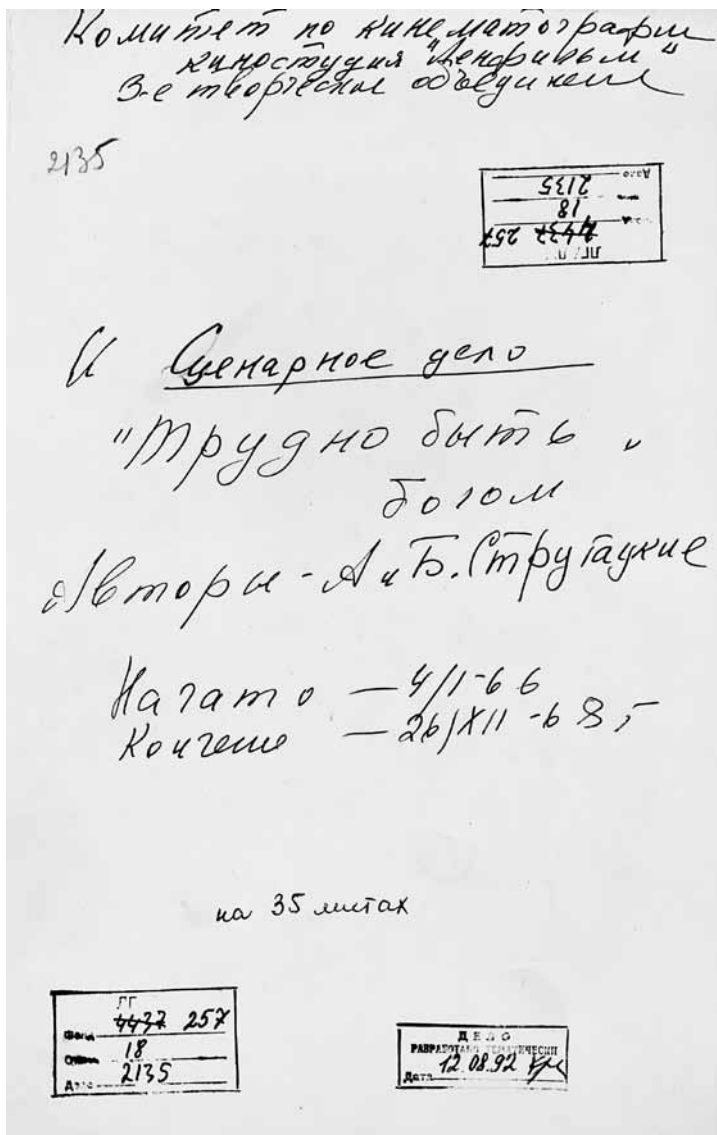 Комитет по кинематографии
киностудия "Ленфильм"
3-е творческое объединение
2135
Дело 2135
18
4437 257
Сценарное дело
"Трудно быть "
богом
Авторы - А и Б. Стругацкие
Начато — 4/I-66
Кончено — 26/XII-68 г
на 35 листах
ЛГ
Фонд 4437 257
Опись 18
Дело 2135
ДЕЛО
РАЗРАБОТАНО ТЕМАТИЧЕСКИ
Дата 12.08.92